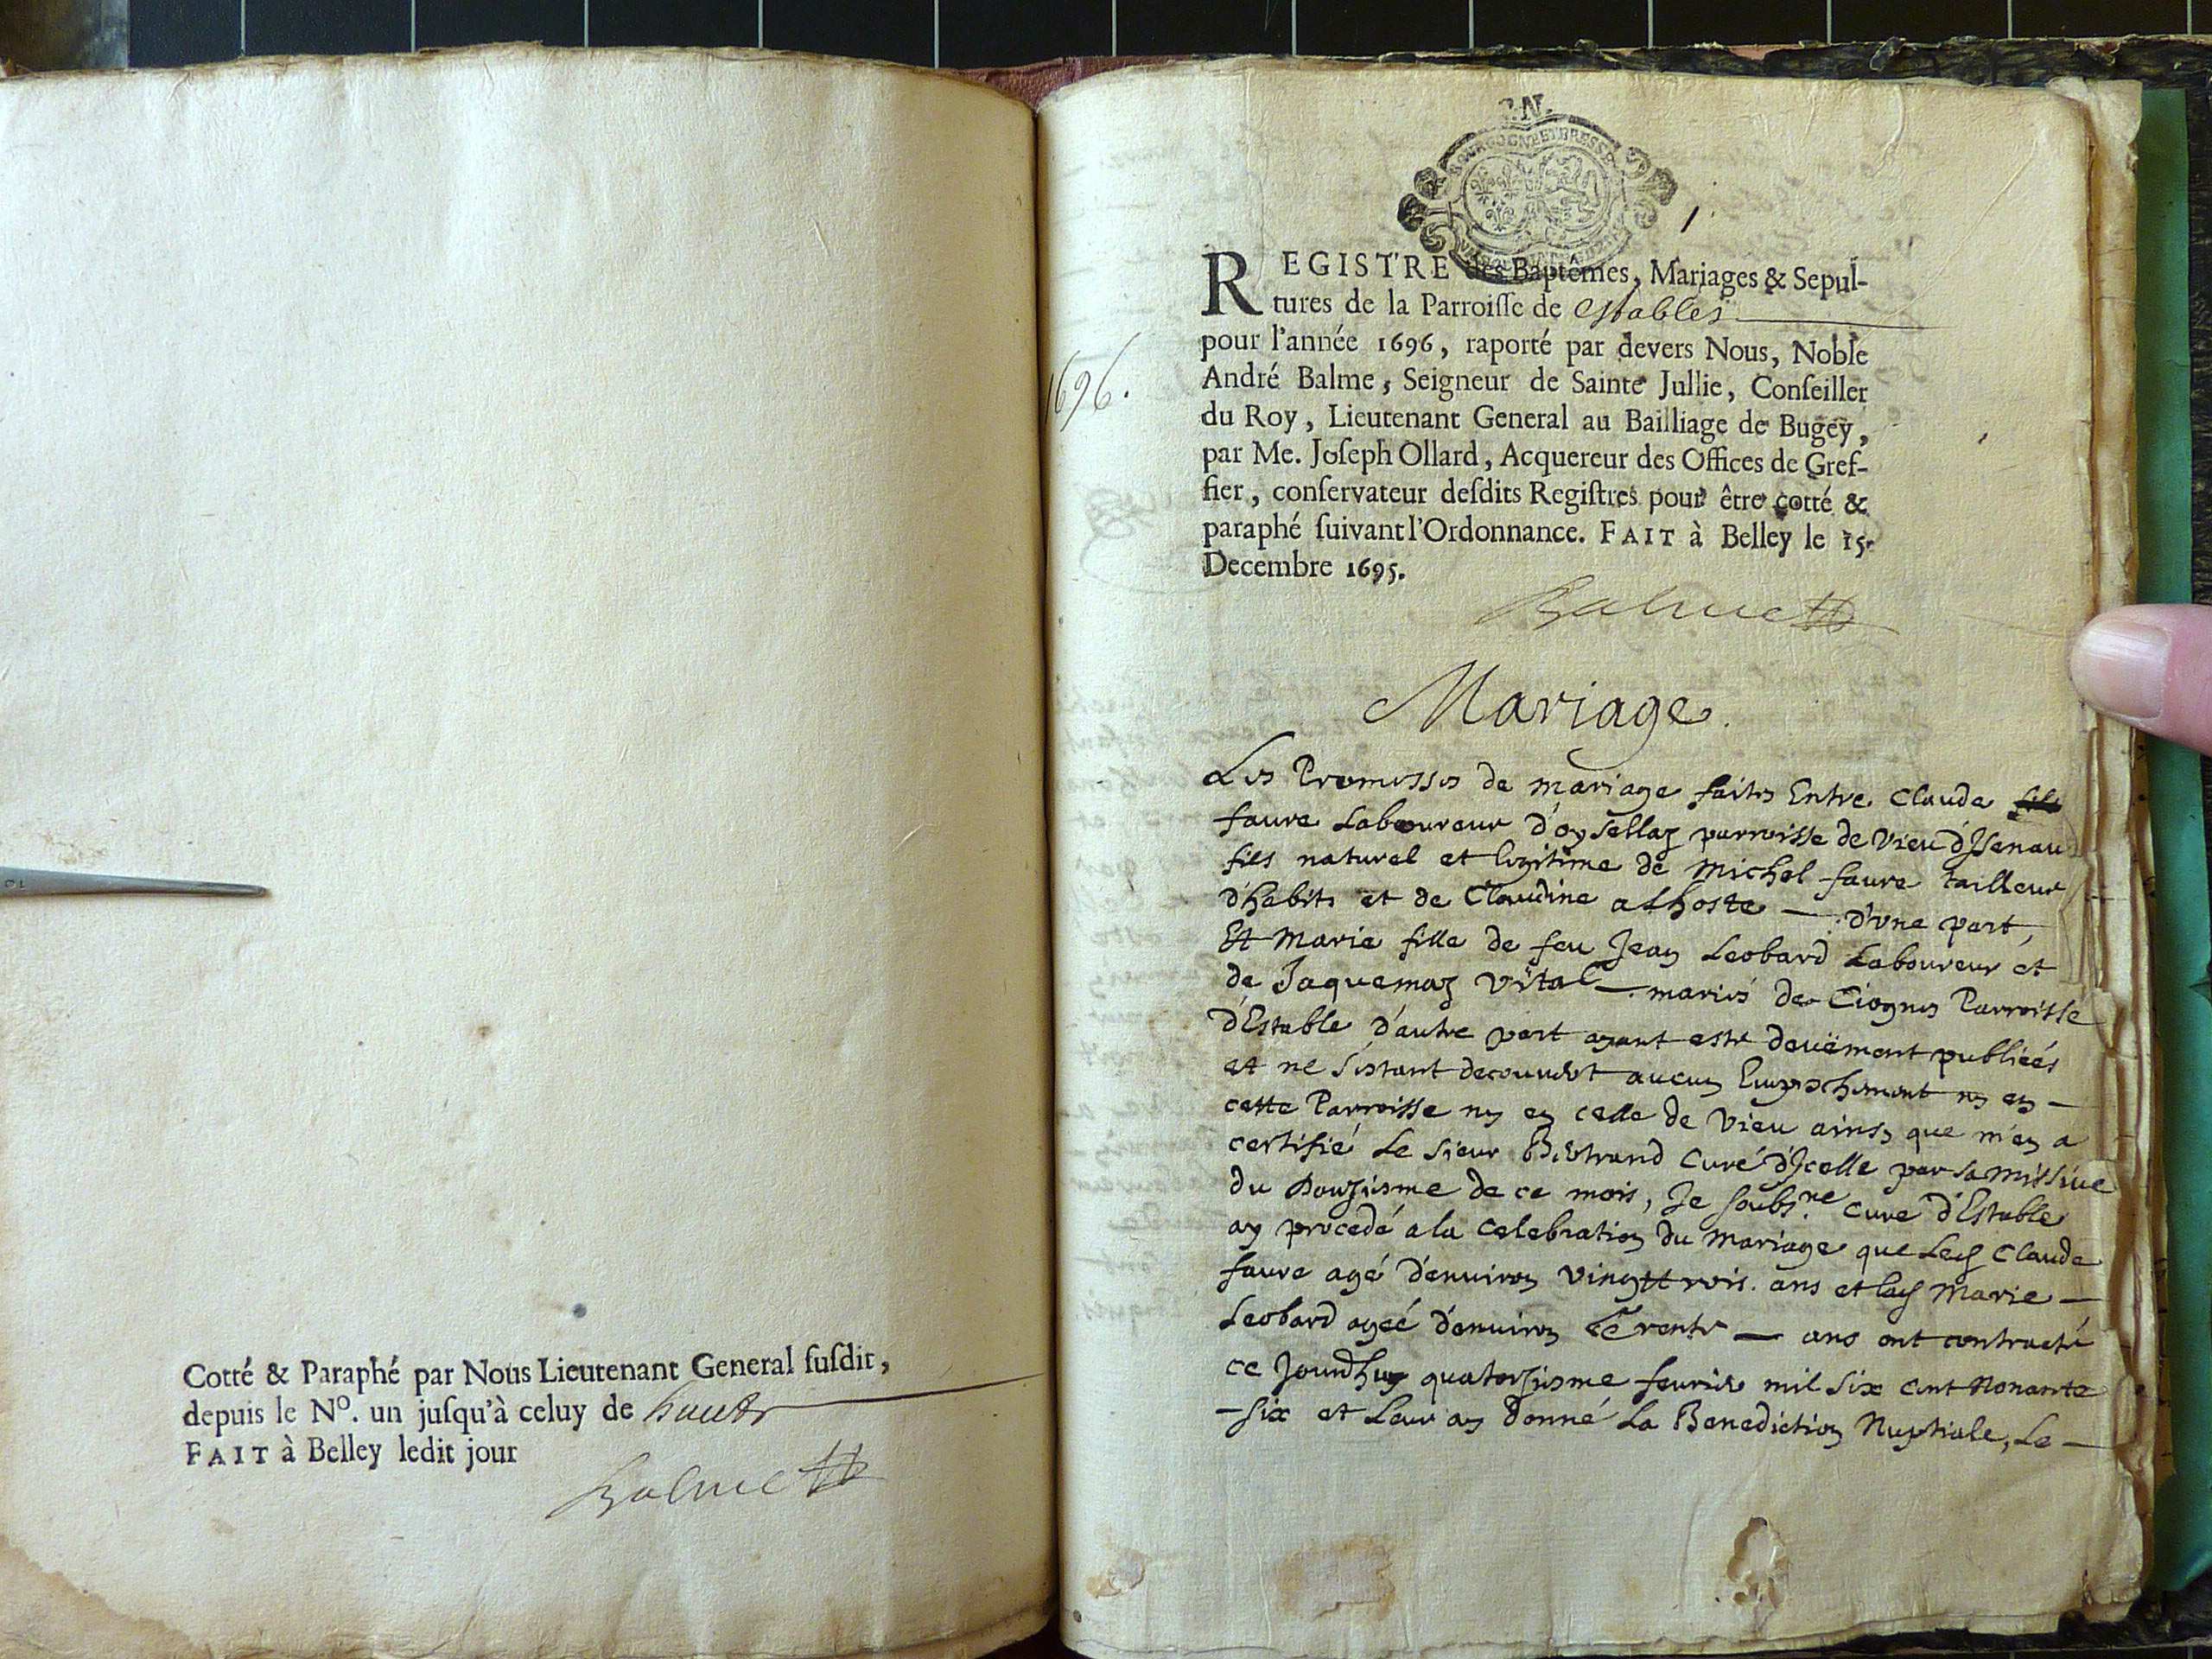 Cotté & Paraphé par Nous Lieutenant General ſuſdit,
depuis le N°. un juſqu'à celuy de
FAIT à Belley ledit jour
Balme
1696.
BOURGOGNE ET BRESSE
1
REGISTRE des Baptêmes, Mariages & Sepul-
tures de la Parroiſſe de Estables
pour l'année 1696, raporté par devers Nous, Noble
André Balme, Seigneur de Sainte Jullie, Conſeiller
du Roy, Lieutenant General au Bailliage de Bugey,
par Me. Joſeph Ollard, Acquereur des Offices de Gref-
fier, conſervateur deſdits Regiſtres pour être cotté &
paraphé ſuivant l'Ordonnance. FAIT à Belley le 15.
Decembre 1695.
Balme
Mariage.
Les Promesses de mariage faites Entre Claude
faure Laboureur d'oysellaz parroisse de Vieu d'Isenau
fils naturel et legitime de Michel faure tailleur
d'habits et de Claudine alhoste — d'une part,
Et Marie fille de feu Jean Leobard Laboureur et
de Jaquemaz Vital — mariés de Ciognes Parroisse
d'Estable d'autre part ayant esté deuëment publiées
et ne s'estant decouvert aucun Empeschement ny en —
cette Parroisse ny en celle de Vieu ainsy que m'en a
certifié Le sieur Bertrand Curé d'Icelle par sa missiue
du douziesme de ce mois, Je soubs.ne curé d'Estable
ay procedé a la celebration du mariage que Led Claude
faure agé d'enuiron vingttrois ans et lad Marie —
Leobard agée d'enuiron Trente — ans ont contracté
ce Jourdhuy quatorziesme feurier mil six cent nonante
-six et Leur ay donné La Benediction Nuptiale, Le —